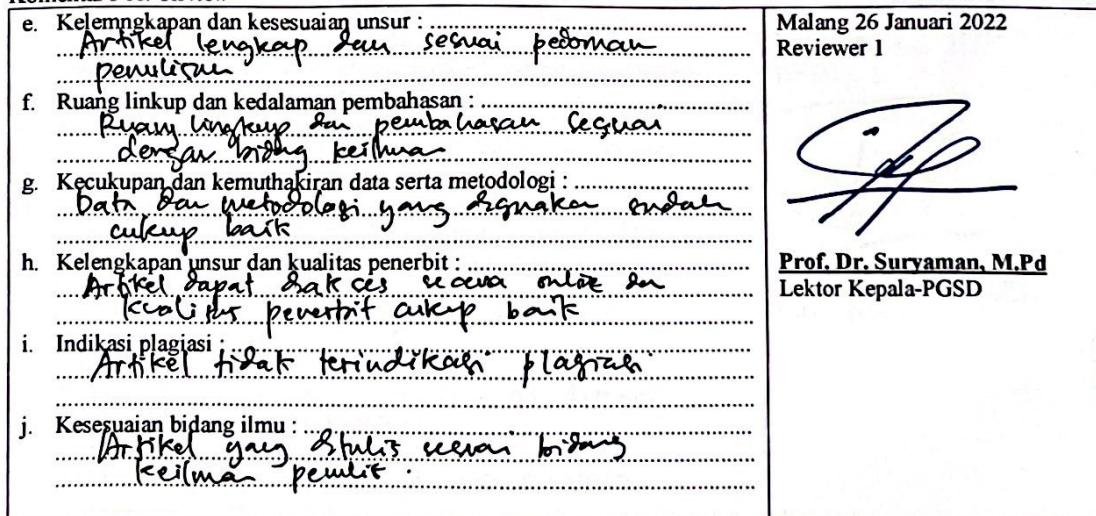 e. Kelemngkapan dan kesesuaian unsur :
Artikel lengkap dan sesuai pedoman
penulisan
f. Ruang linkup dan kedalaman pembahasan :
Ruang lingkup dan pembahasan sesuai
dengan bidang keilmuan
g. Kecukupan dan kemuthakiran data serta metodologi :
Data dan metodologi yang digunakan sudah
cukup baik
h. Kelengkapan unsur dan kualitas penerbit :
Artikel dapat diakses secara online dan
kualitas penerbit cukup baik
i. Indikasi plagiasi :
Artikel tidak terindikasi plagiasi
j. Kesesuaian bidang ilmu :
Artikel yang ditulis sesuai bidang
keilmuan penulis.
Malang 26 Januari 2022
Reviewer 1
Prof. Dr. Suryaman, M.Pd
Lektor Kepala-PGSD